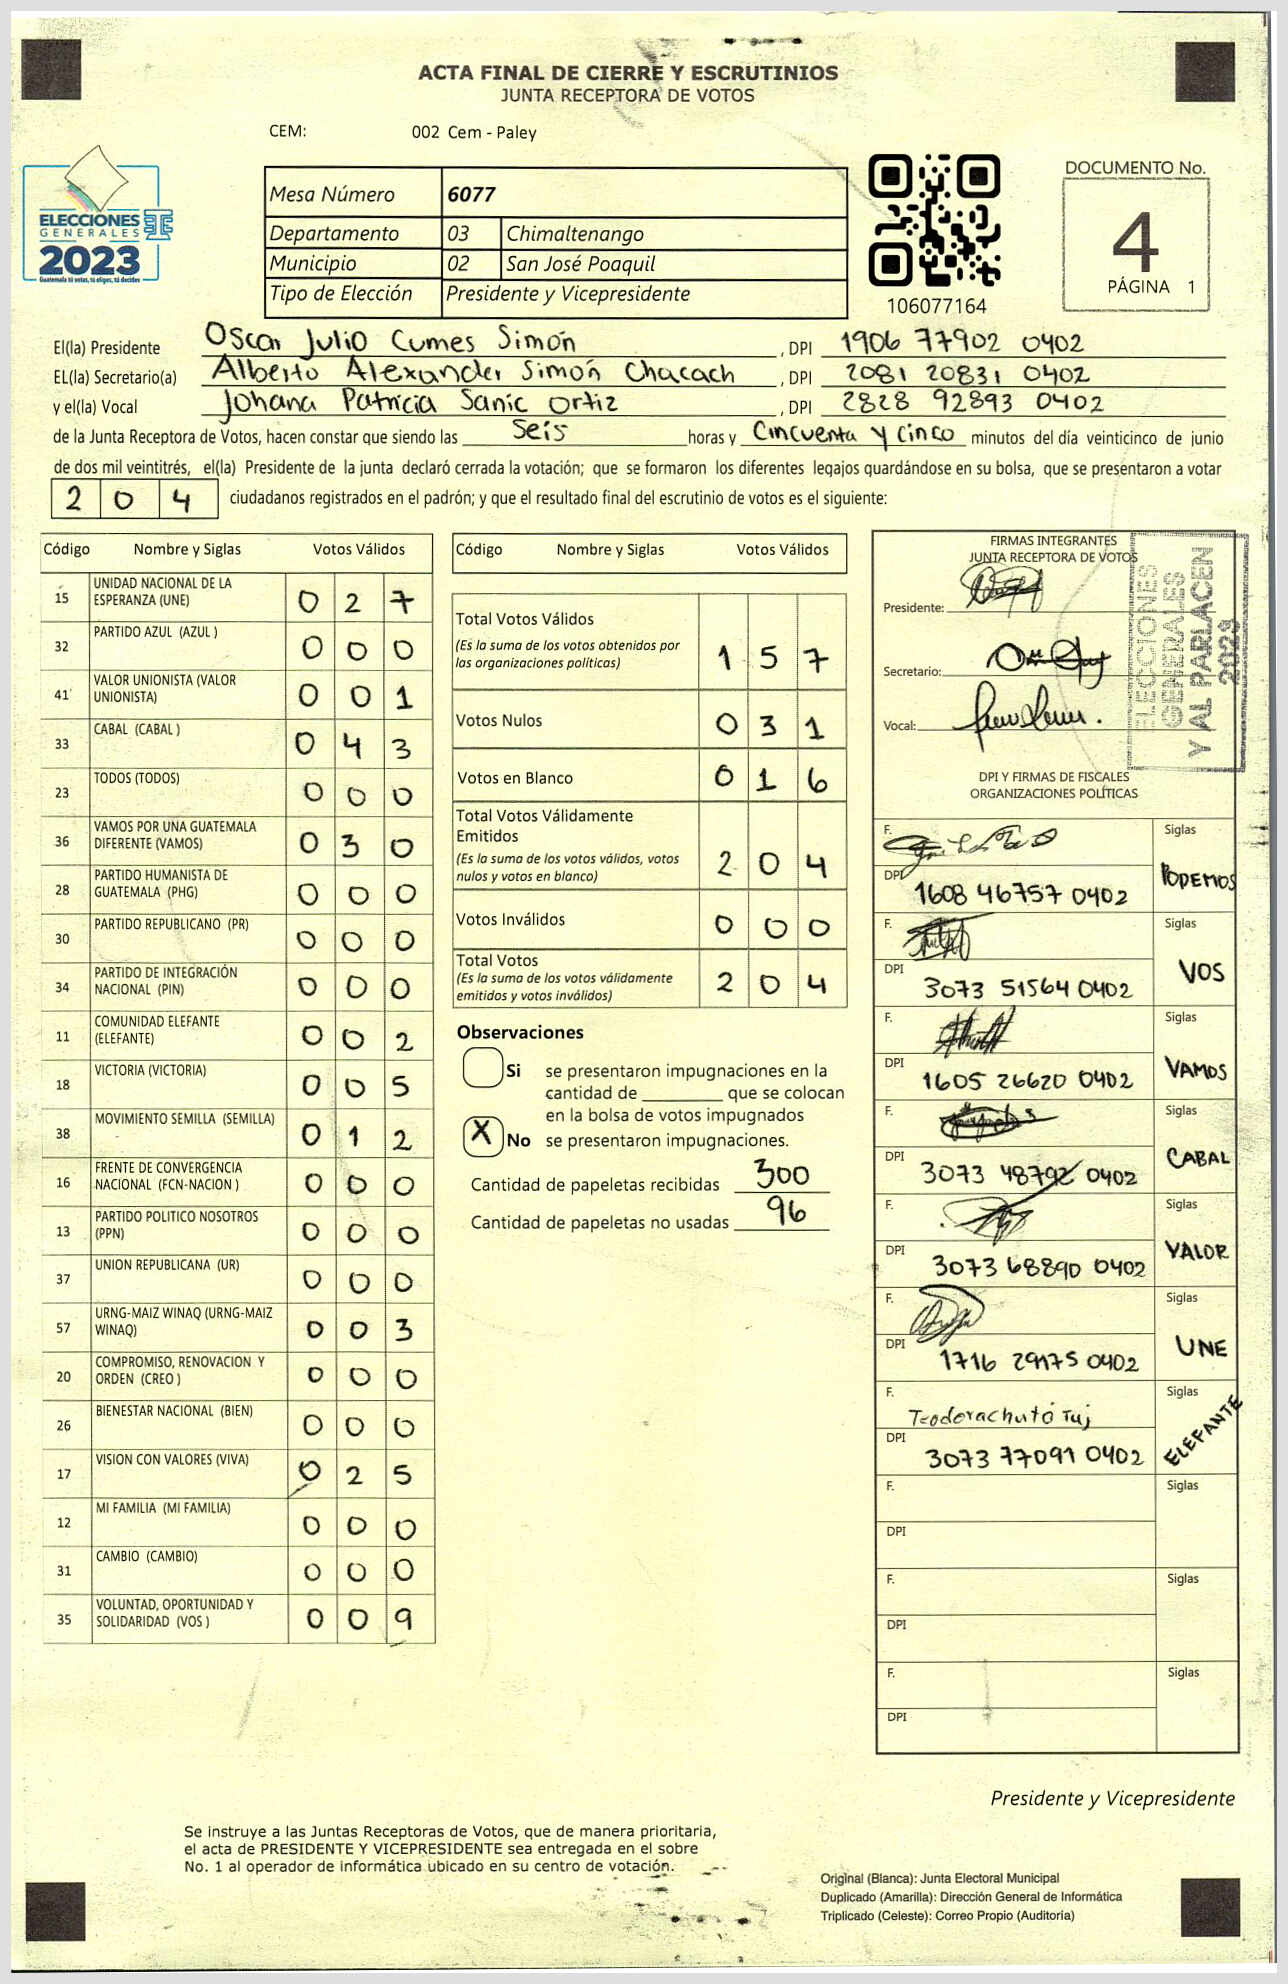 ACTA FINAL DE CIERRE Y ESCRUTINIOS
JUNTA RECEPTORA DE VOTOS
CEM: 002 Cem - Paley
ELECCIONES
GENERALES
2023
Guatemala tú votas, tú eliges, tú decides
Mesa Número 6077
Departamento 03 Chimaltenango
Municipio 02 San José Poaquil
Tipo de Elección Presidente y Vicepresidente
106077164
DOCUMENTO No.
4
PÁGINA 1
El(la) Presidente Oscar Julio Cumes Simón , DPI 1906 77902 0402
EL(la) Secretario(a) Alberto Alexander Simón Chacach , DPI 2081 20831 0402
y el(la) Vocal Johana Patricia Sanic Ortiz , DPI 2828 92893 0402
de la Junta Receptora de Votos, hacen constar que siendo las Seis horas y Cincuenta y Cinco minutos del día veinticinco de junio
de dos mil veintitrés, el(la) Presidente de la junta declaró cerrada la votación; que se formaron los diferentes legajos guardándose en su bolsa, que se presentaron a votar
2 0 4 ciudadanos registrados en el padrón; y que el resultado final del escrutinio de votos es el siguiente:
Código Nombre y Siglas Votos Válidos
15 UNIDAD NACIONAL DE LA ESPERANZA (UNE) 0 2 7
32 PARTIDO AZUL (AZUL ) 0 0 0
41 VALOR UNIONISTA (VALOR UNIONISTA) 0 0 1
33 CABAL (CABAL ) 0 4 3
23 TODOS (TODOS) 0 0 0
36 VAMOS POR UNA GUATEMALA DIFERENTE (VAMOS) 0 3 0
28 PARTIDO HUMANISTA DE GUATEMALA (PHG) 0 0 0
30 PARTIDO REPUBLICANO (PR) 0 0 0
34 PARTIDO DE INTEGRACIÓN NACIONAL (PIN) 0 0 0
11 COMUNIDAD ELEFANTE (ELEFANTE) 0 0 2
18 VICTORIA (VICTORIA) 0 0 5
38 MOVIMIENTO SEMILLA (SEMILLA) 0 1 2
16 FRENTE DE CONVERGENCIA NACIONAL (FCN-NACION ) 0 0 0
13 PARTIDO POLITICO NOSOTROS (PPN) 0 0 0
37 UNION REPUBLICANA (UR) 0 0 0
57 URNG-MAIZ WINAQ (URNG-MAIZ WINAQ) 0 0 3
20 COMPROMISO, RENOVACION Y ORDEN (CREO ) 0 0 0
26 BIENESTAR NACIONAL (BIEN) 0 0 0
17 VISION CON VALORES (VIVA) 0 2 5
12 MI FAMILIA (MI FAMILIA) 0 0 0
31 CAMBIO (CAMBIO) 0 0 0
35 VOLUNTAD, OPORTUNIDAD Y SOLIDARIDAD (VOS ) 0 0 9
Código Nombre y Siglas Votos Válidos
Total Votos Válidos
(Es la suma de los votos obtenidos por
las organizaciones políticas) 1 5 7
Votos Nulos 0 3 1
Votos en Blanco 0 1 6
Total Votos Válidamente
Emitidos
(Es la suma de los votos válidos, votos
nulos y votos en blanco) 2 0 4
Votos Inválidos 0 0 0
Total Votos
(Es la suma de los votos válidamente
emitidos y votos inválidos) 2 0 4
Observaciones
Si se presentaron impugnaciones en la
cantidad de ________ que se colocan
en la bolsa de votos impugnados
X No se presentaron impugnaciones.
Cantidad de papeletas recibidas 300
Cantidad de papeletas no usadas 96
FIRMAS INTEGRANTES
JUNTA RECEPTORA DE VOTOS
Presidente:
Secretario:
Vocal:
ELECCIONES
GENERALES
Y AL PARLACEN
2023
DPI Y FIRMAS DE FISCALES
ORGANIZACIONES POLÍTICAS
F. Siglas
DPI 1608 46757 0402 PODEMOS
F. Siglas
DPI 3073 51564 0402 VOS
F. Siglas
DPI 1605 26620 0402 VAMOS
F. Siglas
DPI 3073 48792 0402 CABAL
F. Siglas
DPI 3073 68890 0402 VALOR
F. Siglas
DPI 1716 29175 0402 UNE
F. Teodora chutá Tuj Siglas
DPI 3073 77091 0402 ELEFANTE
F. Siglas
DPI
F. Siglas
DPI
F. Siglas
DPI
Presidente y Vicepresidente
Se instruye a las Juntas Receptoras de Votos, que de manera prioritaria,
el acta de PRESIDENTE Y VICEPRESIDENTE sea entregada en el sobre
No. 1 al operador de informática ubicado en su centro de votación.
Original (Blanca): Junta Electoral Municipal
Duplicado (Amarilla): Dirección General de Informática
Triplicado (Celeste): Correo Propio (Auditoría)